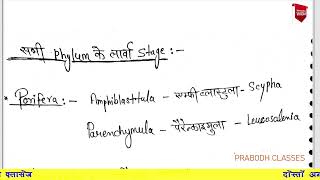 सभी Phylum के लार्वा Stage:-
* Porifera:- Amphiblastula - एम्फीब्लास्टुला - Scypha
Parenchymula - पैरेनकाइमुला - Leucosolenia
PRABODH CLASSES
दोस्तों